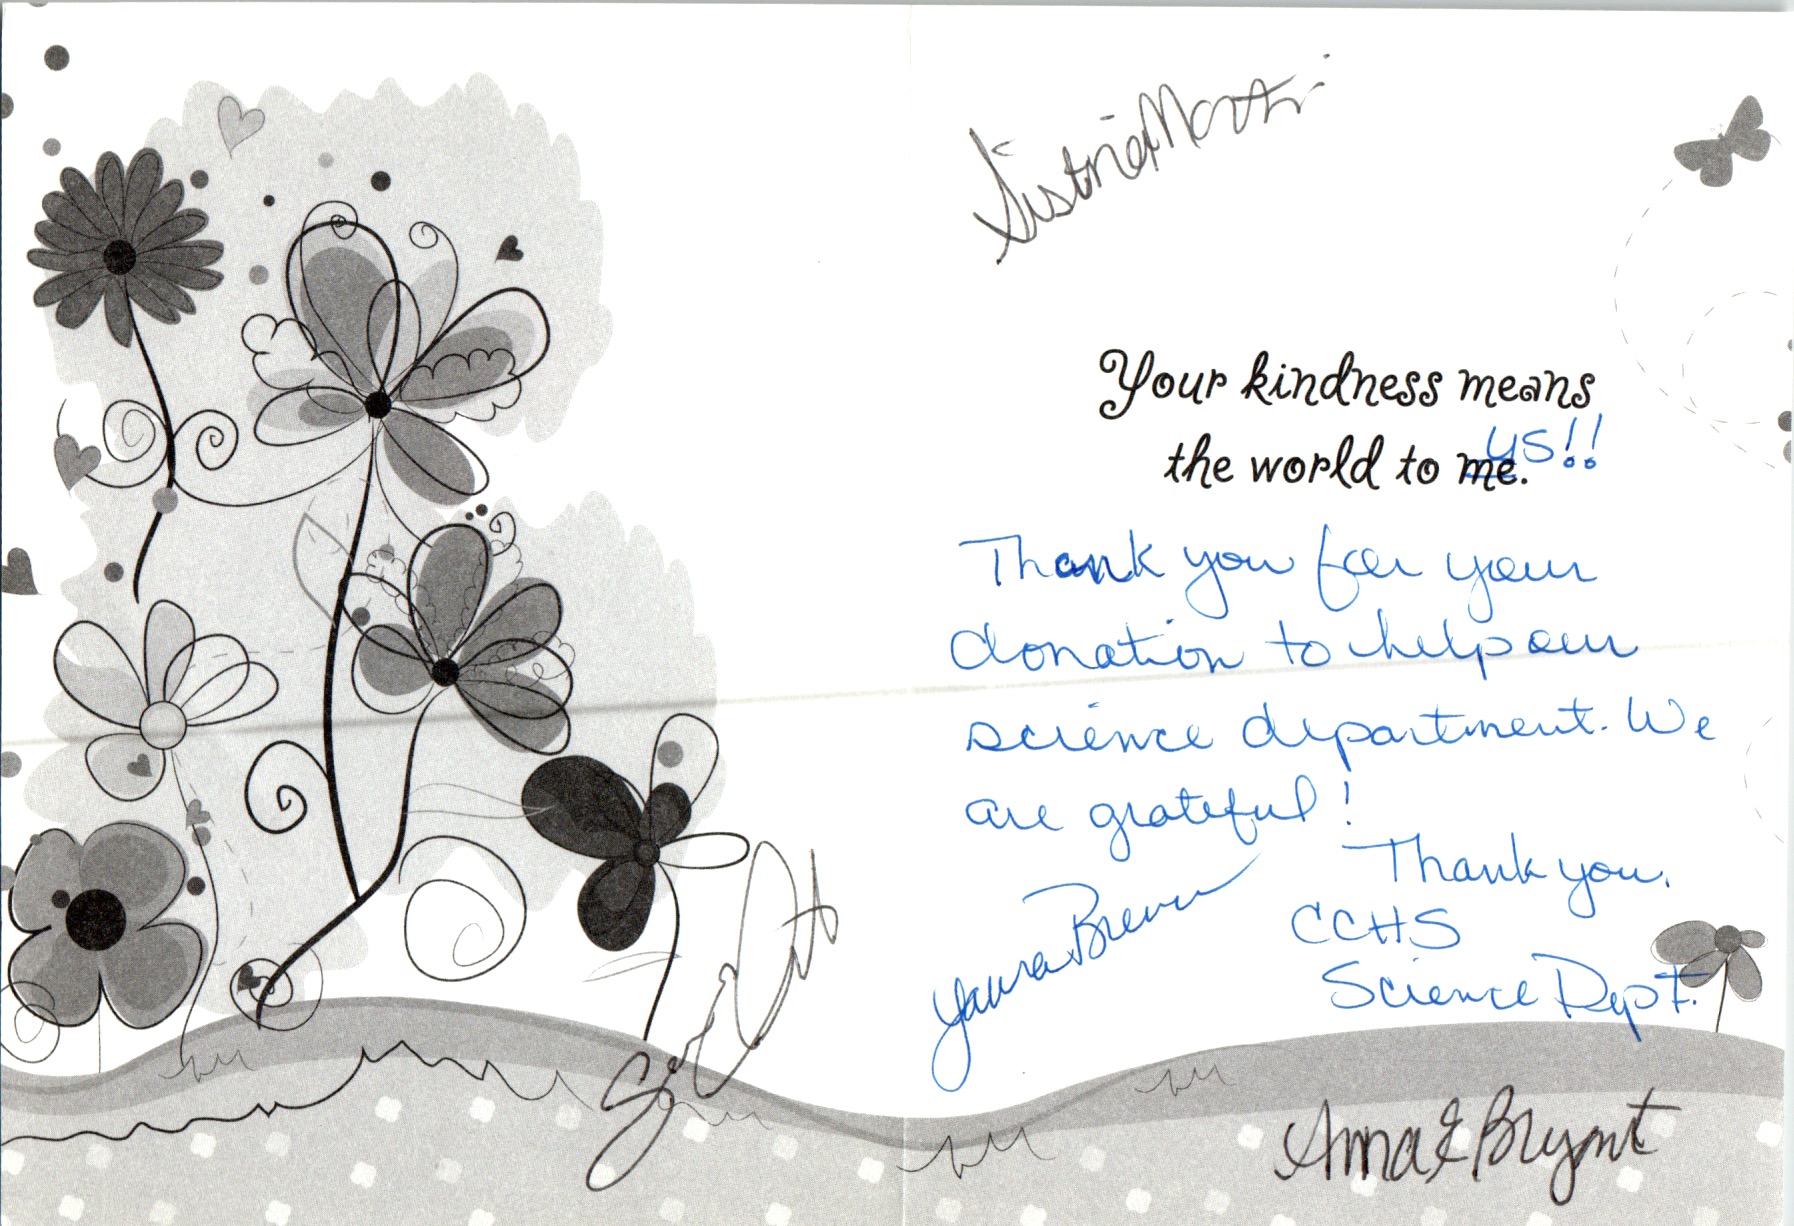 Your kindness means
the world to me. us!!
Thank you for your
donation to help our
science department. We
are grateful!
Thank you.
CCHS
Science Dept.
Anna E Bryant